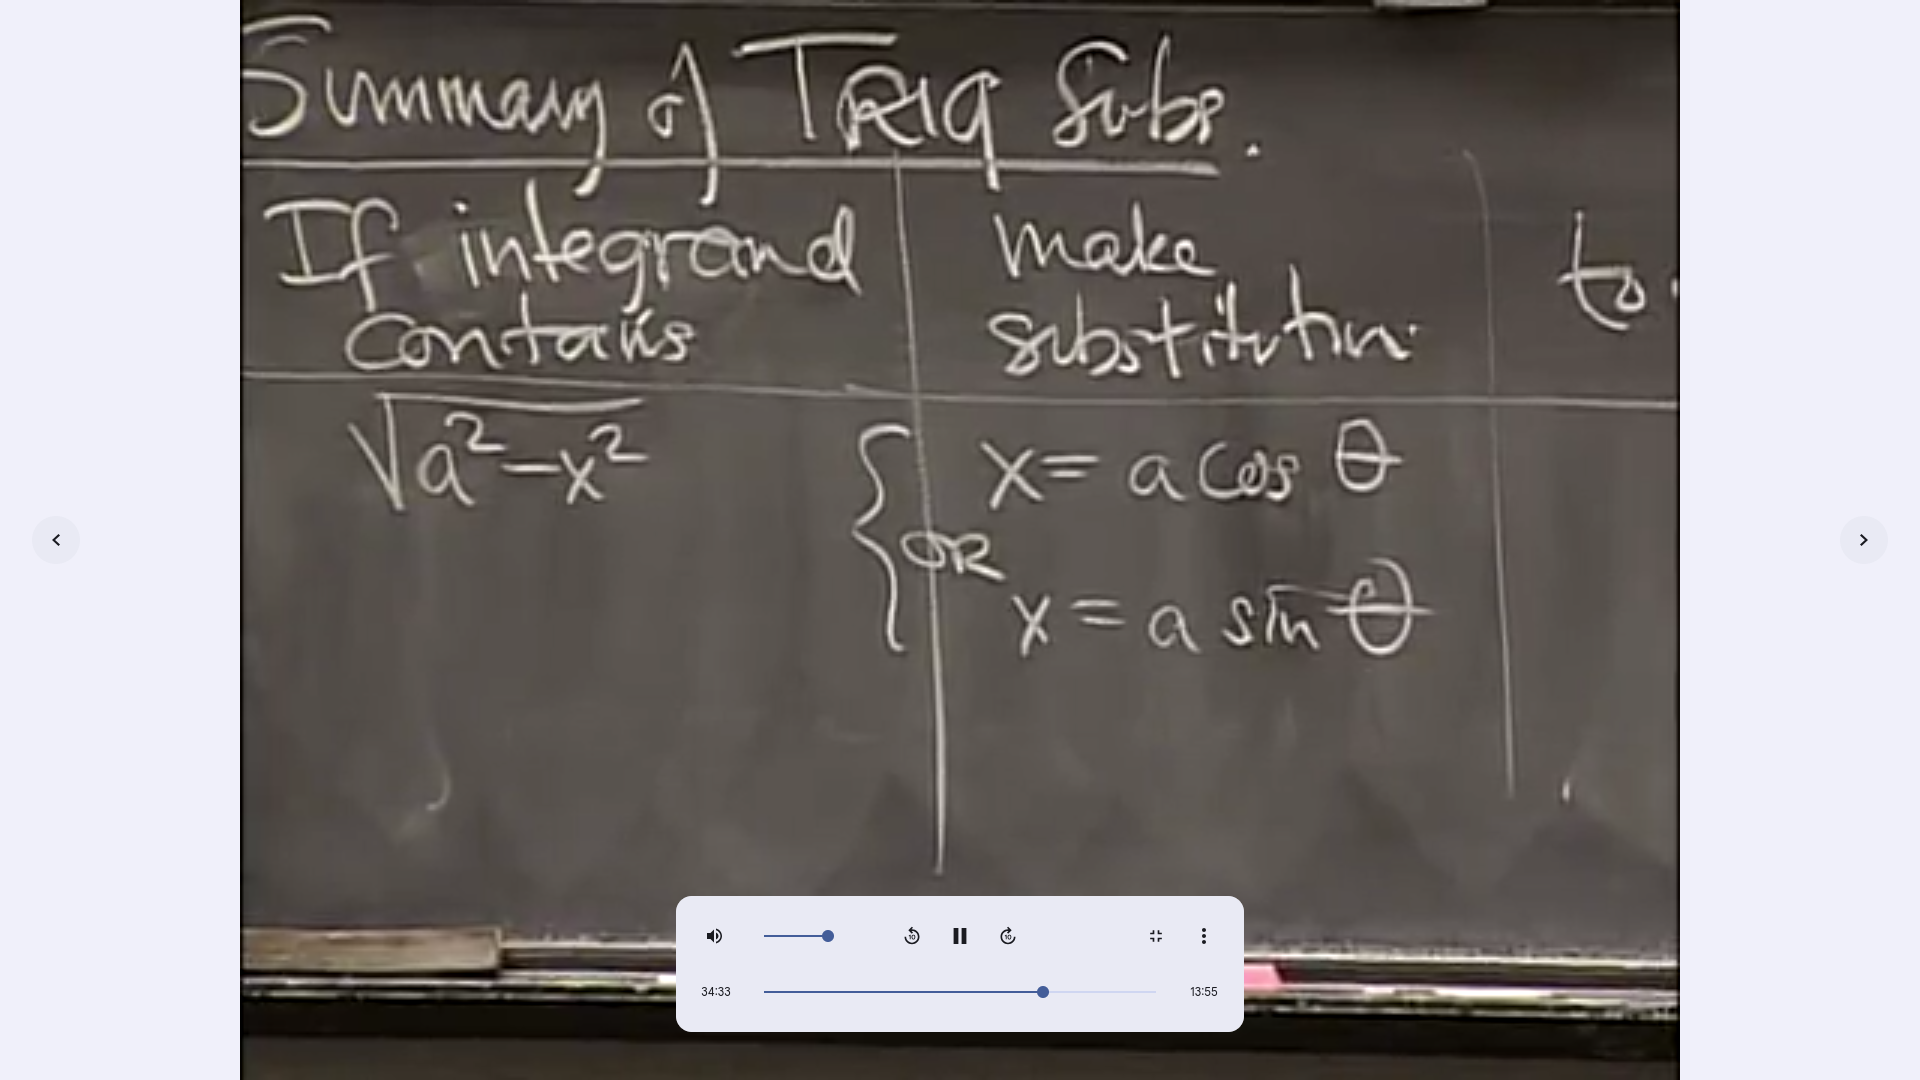 Summary of TRIG Subs.
If integrand contains
make substitution
to
√a²-x²
{ x = a cos θ
OR
x = a sin θ
34:33
13:55